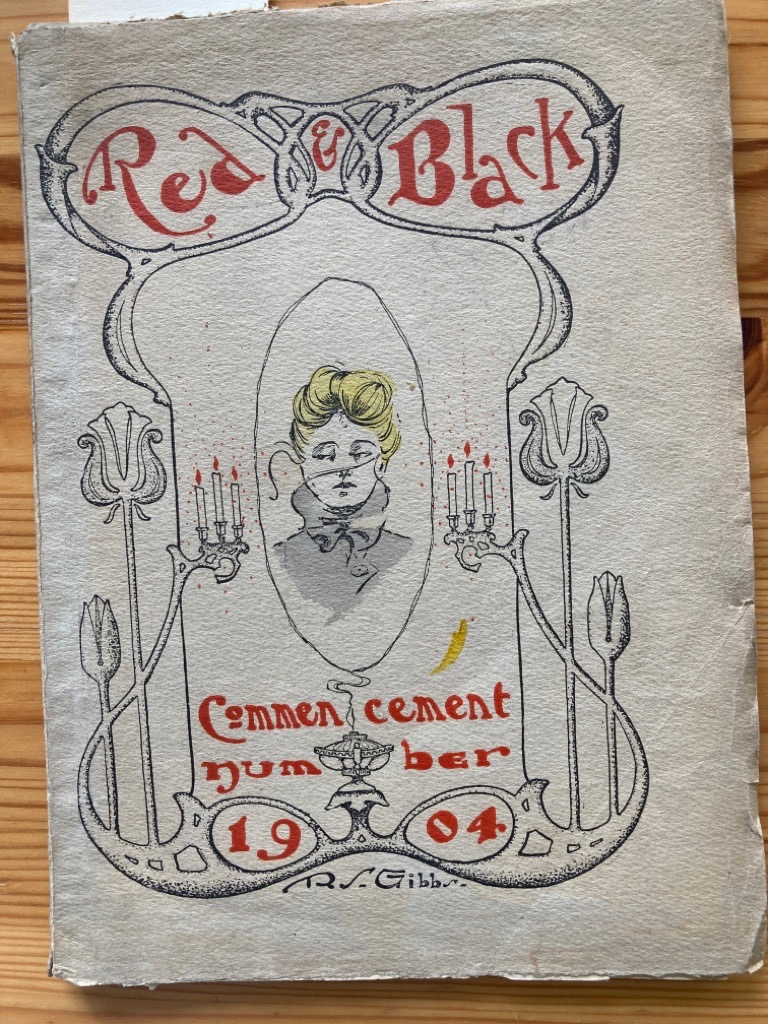 Red & Black
Commencement
number
1904
R. S. Gibbs.